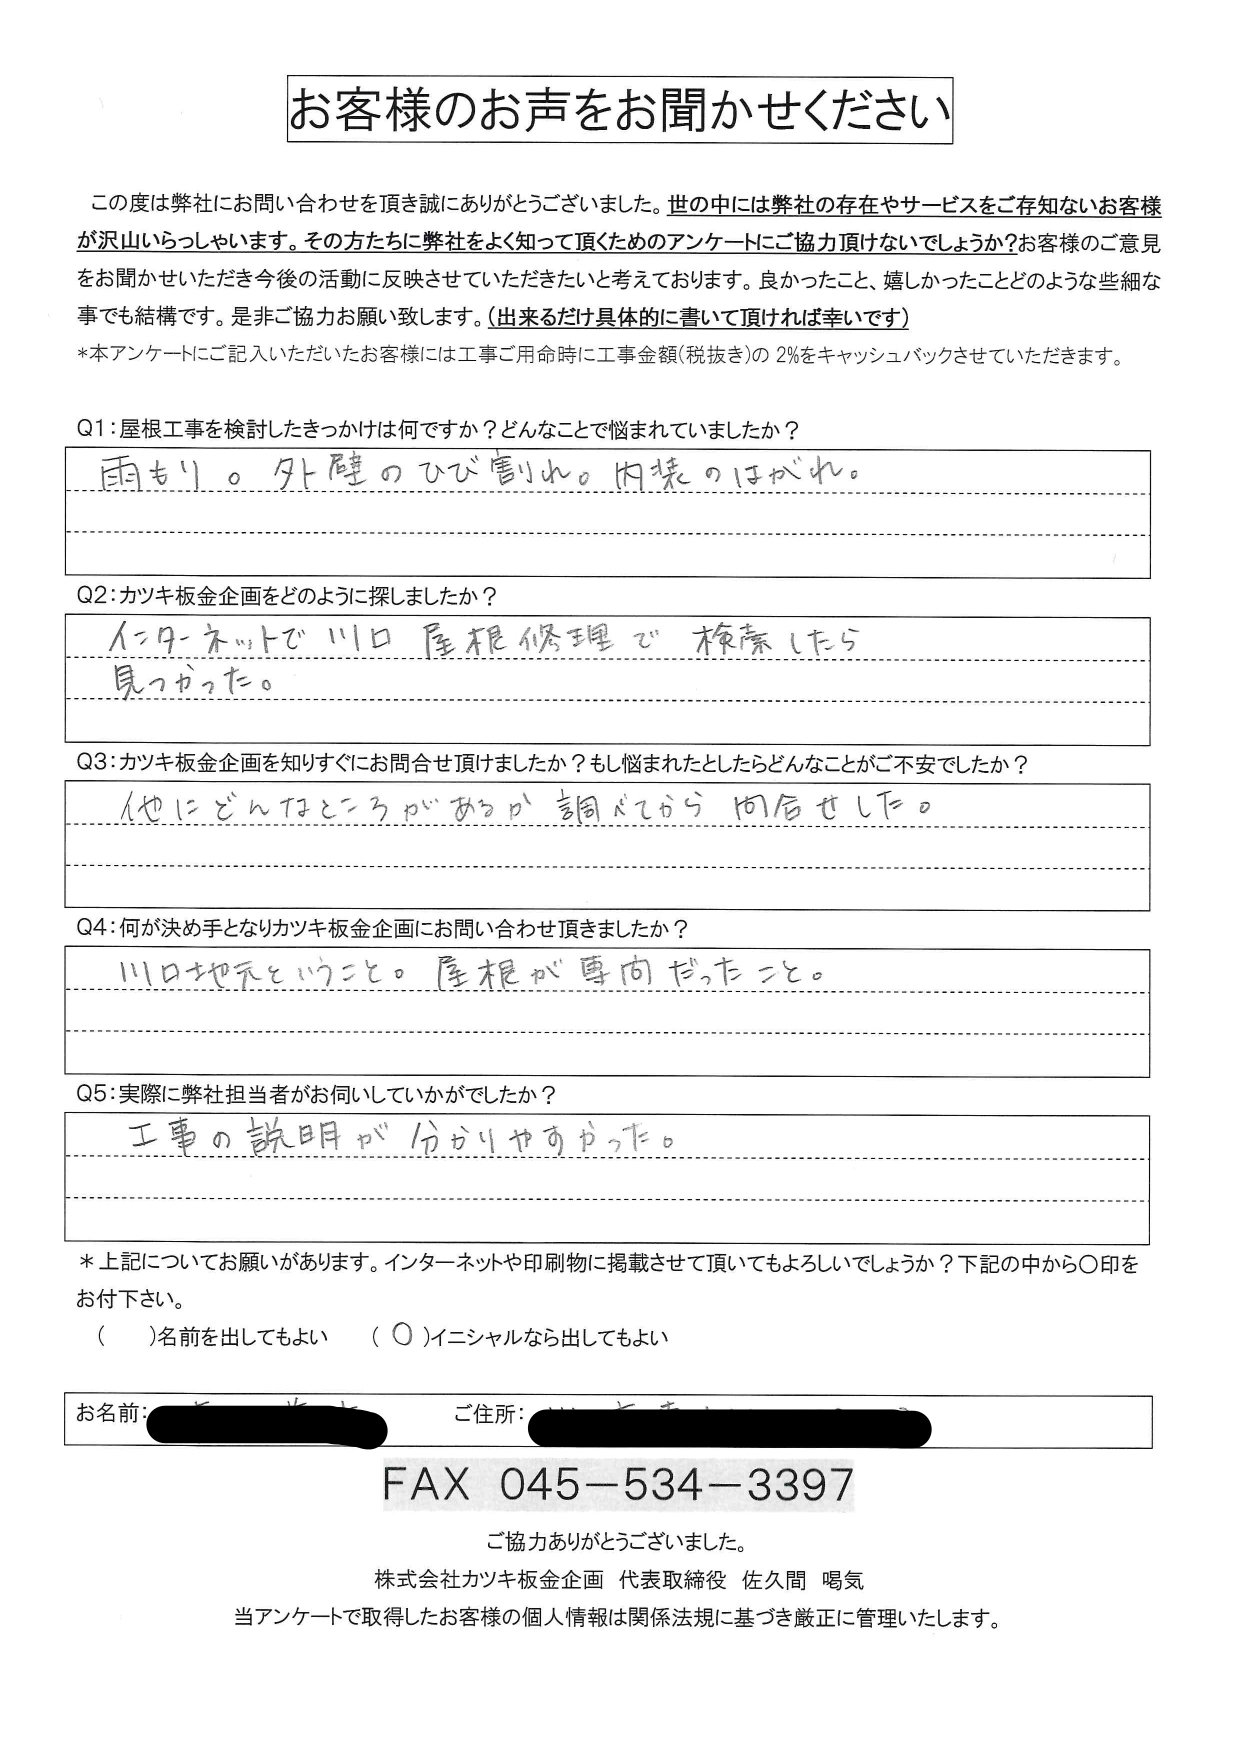 お客様のお声をお聞かせください
この度は弊社にお問い合わせを頂き誠にありがとうございました。世の中には弊社の存在やサービスをご存知ないお客様
が沢山いらっしゃいます。その方たちに弊社をよく知って頂くためのアンケートにご協力頂けないでしょうか?お客様のご意見
をお聞かせいただき今後の活動に反映させていただきたいと考えております。良かったこと、嬉しかったことどのような些細な
事でも結構です。是非ご協力お願い致します。(出来るだけ具体的に書いて頂ければ幸いです)
*本アンケートにご記入いただいたお客様には工事ご用命時に工事金額(税抜き)の 2%をキャッシュバックさせていただきます。
Q1:屋根工事を検討したきっかけは何ですか?どんなことで悩まれていましたか?
雨もり。外壁のひび割れ。内装のはがれ。
Q2:カツキ板金企画をどのように探しましたか?
インターネットで川口 屋根修理で 検索したら
見つかった。
Q3:カツキ板金企画を知りすぐにお問合せ頂けましたか?もし悩まれたとしたらどんなことがご不安でしたか?
他にどんなところがあるか調べてから問合せした。
Q4:何が決め手となりカツキ板金企画にお問い合わせ頂きましたか?
川口地元ということ。屋根が専門だったこと。
Q5:実際に弊社担当者がお伺いしていかがでしたか?
工事の説明が分かりやすかった。
*上記についてお願いがあります。インターネットや印刷物に掲載させて頂いてもよろしいでしょうか?下記の中から〇印を
お付下さい。
( )名前を出してもよい (〇)イニシャルなら出してもよい
お名前: ご住所:
FAX 045-534-3397
ご協力ありがとうございました。
株式会社カツキ板金企画 代表取締役 佐久間 喝気
当アンケートで取得したお客様の個人情報は関係法規に基づき厳正に管理いたします。